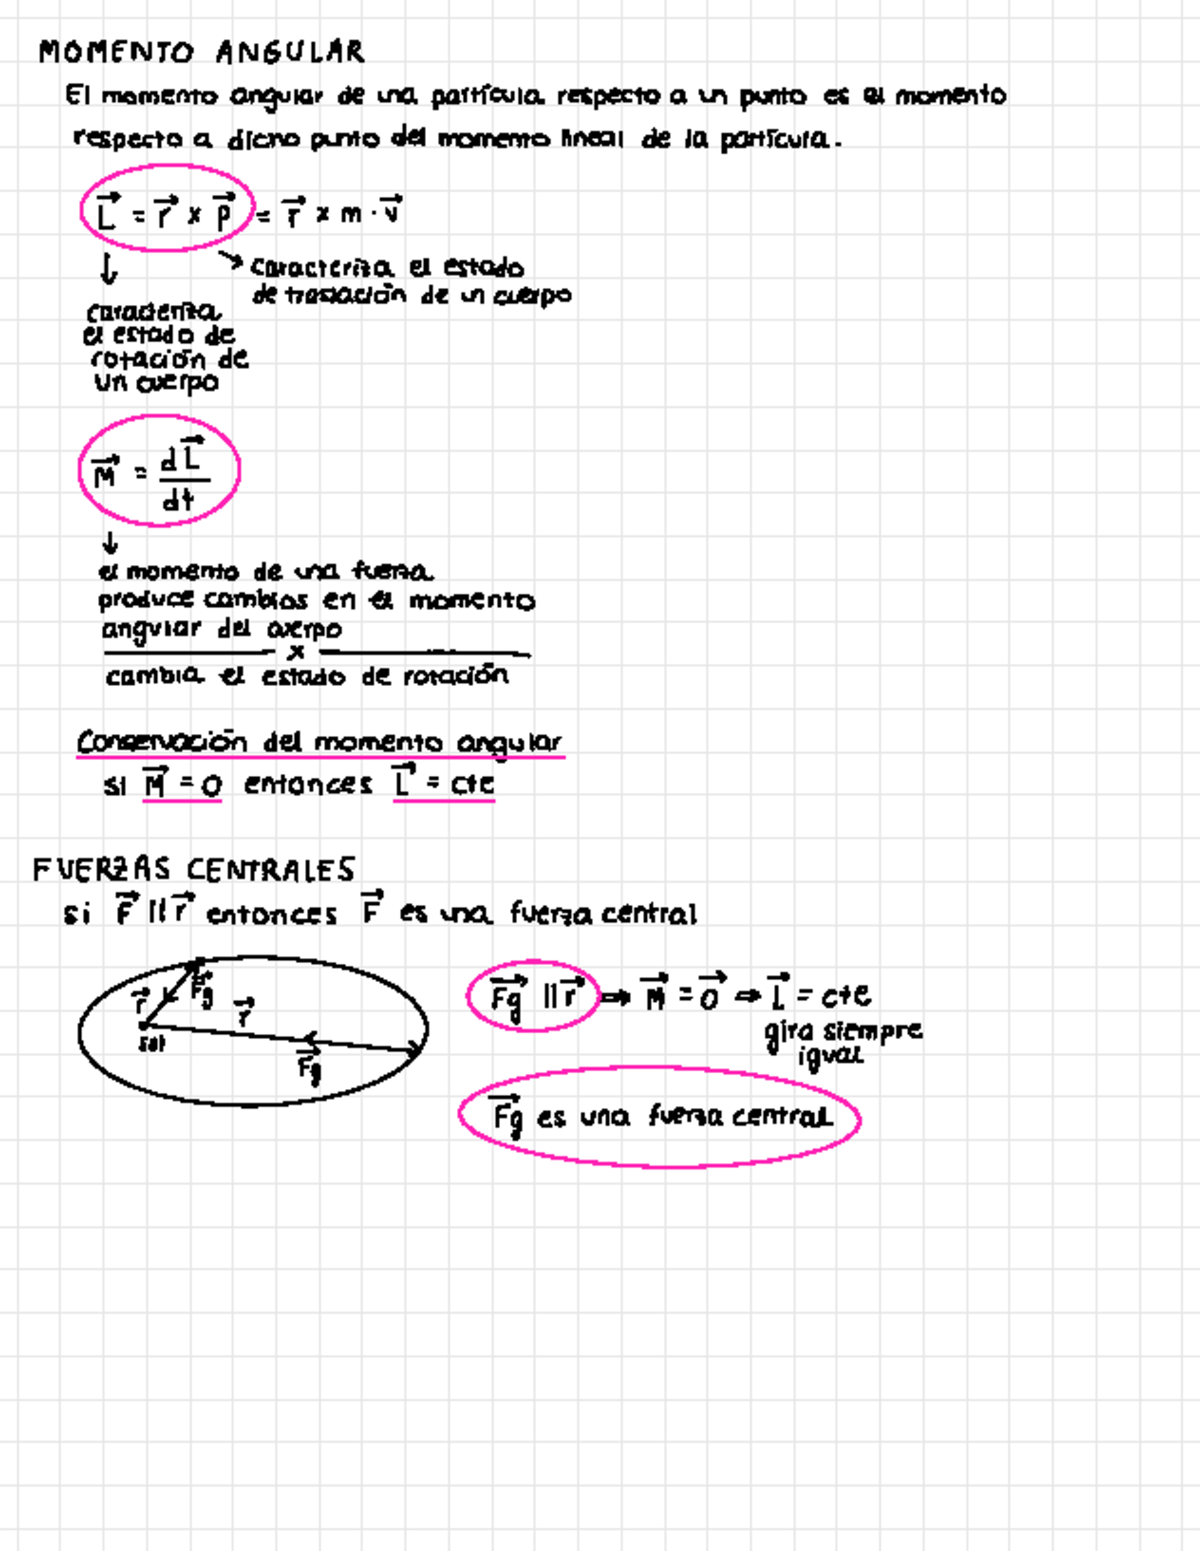 MOMENTO ANGULAR
El momento angular de una partícula respecto a un punto es el momento
respecto a dicho punto del momento lineal de la partícula.
L⃗ = r⃗ x p⃗ = r⃗ x m · v⃗
↓ ↘ caracteriza el estado
de traslación de un cuerpo
caracteriza
el estado de
rotación de
un cuerpo
M⃗ = dL⃗/dt
↓
el momento de una fuerza
produce cambios en el momento
angular del cuerpo
x
cambia el estado de rotación
Conservación del momento angular
si M⃗ = 0 entonces L⃗ = cte
FUERZAS CENTRALES
si F⃗ || r⃗ entonces F⃗ es una fuerza central
r⃗ F⃗g r⃗
sol
F⃗g
F⃗g || r⃗ ⇒ M⃗ = 0⃗ ⇒ L⃗ = cte
gira siempre
igual
F⃗g es una fuerza central